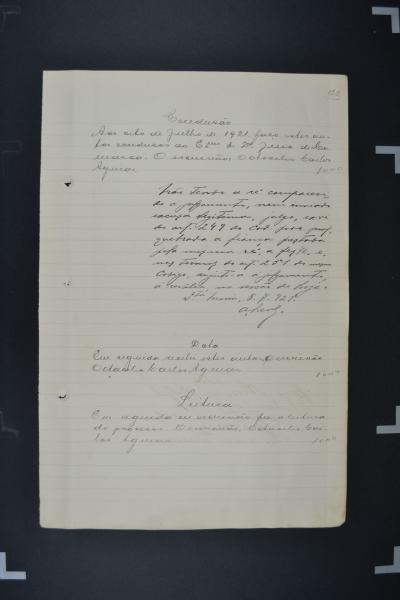 Conclusão
Aos oito de Julho de 1921 faço estes au-
tos conclusos ao Exmo Sr. Dr. Juiz da Co-
marca. O escrivão, Octacilio Carlos
Aguiar 1000
Não tendo a ré comparecido
a julgamento, nem enviado
escusa legitima, julgo,
do art. 249 do Cod.
quebrada a fiança prestada
pela mesma ré, a fls. e,
nos termos do art. 251 do mesmo
Codigo, sujeita a julgamento,
á revelia, na sessão de hoje.
Sta 8. 7. 921.
Data
Em seguida recebi estes autos. O escrivão
Octacilio Carlos Aguiar 1000
Leitura
Em seguida eu escrivão fiz a leitura
do processo. O escrivão, Octacilio Car-
los Aguiar 1000